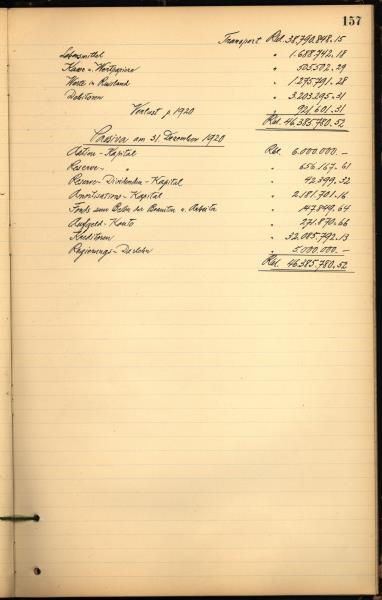 157
Transport Rbl. 38.790.848.15
Lebensmittel " 1.688.742.18
Kassa u. Wertpapiere " 505.502.29
Werte in Russland " 1.275.791.28
Debitoren " 3.203.295.31
Verlust p 1920 " 921.601.31
Rbl. 46.385.780.52
Passiva am 31. Dezember 1920
Aktien-Kapital Rbl. 6.000.000.—
Reserve- " " 656.167.61
Reserve-Dividenden-Kapital " 42.399.32
Amortisations-Kapital " 2.181.701.16
Fonds zum Besten der Beamten u. Arbeiter " 147.849.64
Aufgeld-Konto " 271.870.66
Kreditoren " 32.085.792.13
Regierungs-Darlehn " 5.000.000.—
Rbl. 46.385.780.52